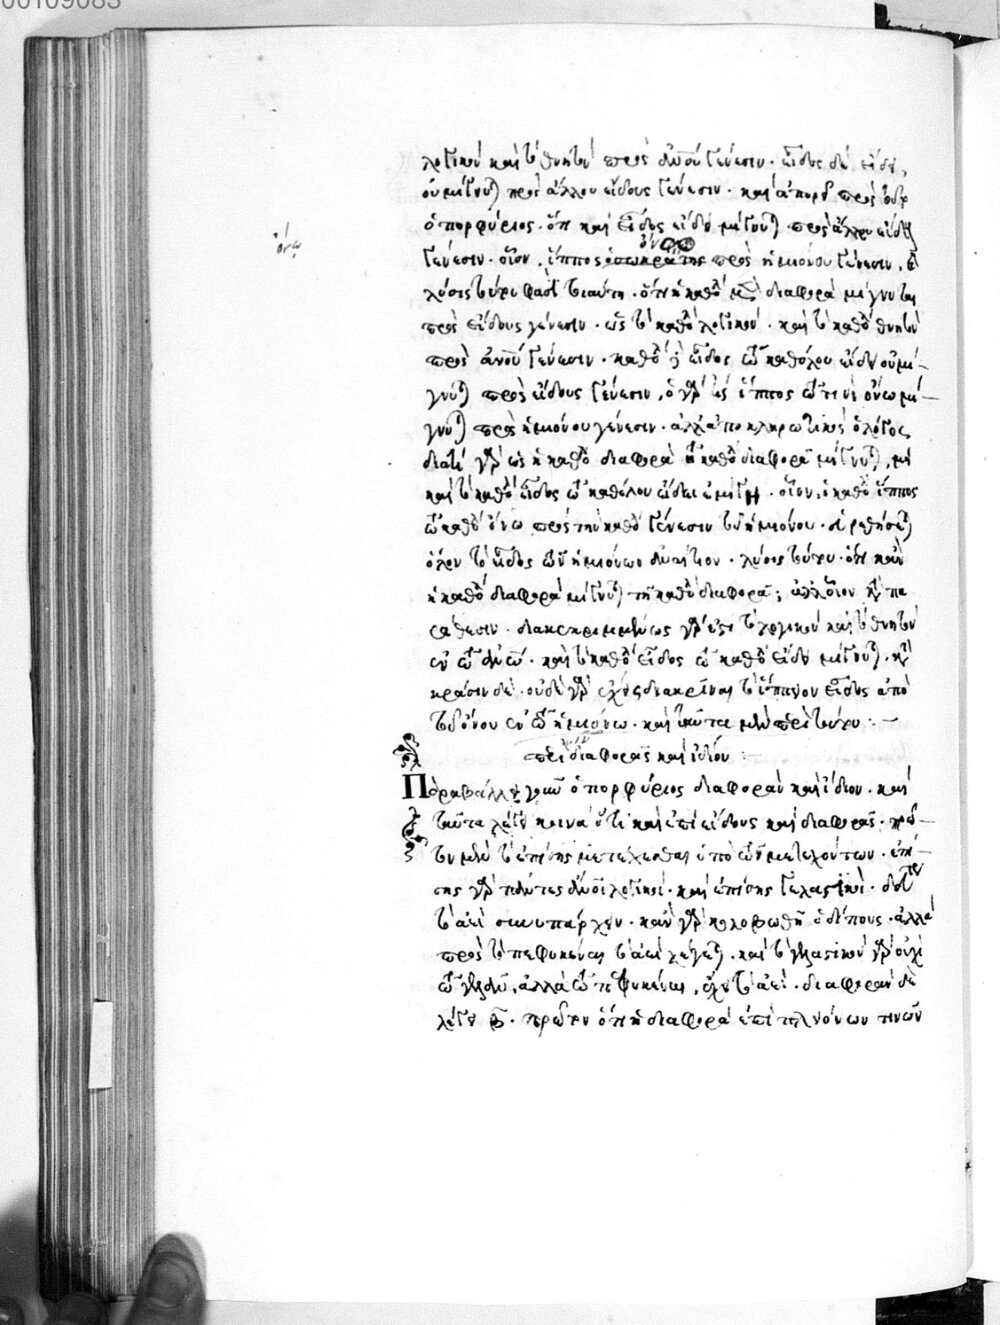 00109083
λογικὸν καὶ τὸ θνητὸν πρὸς ἀνου γένεσιν. εἶδος δὲ εἴδει
οὐ μίγνυται πρὸς ἄλλου εἴδους γένεσιν. καὶ ἀπορεῖ πρὸς
ὁ πορφύριος. ὅτι καὶ εἶδος εἴδει μίγνυται πρὸς ἄλλου εἴδους
ὄνῳ
γένεσιν. οἷον, ἵππος πρὸς ἡμιόνου γένεσιν.
λύσις τοιαύτη. ὅτι ἡ καθό διαφορὰ μίγνυται
πρὸς εἴδους γένεσιν. ὡς τὸ καθὸ λογικὸν. καὶ τὸ καθὸ θνητὸν
πρὸς ἀνου γένεσιν. καθὸ εἶδος καθόλου εἴδει οὐ μί-
γνυται πρὸς εἴδους γένεσιν, ὁ γὰρ ἵππος τινὶ ὄνῳ μί-
γνυται πρὸς ἡμιόνου γένεσιν. ἀλλὰ ἀποκληρωτικὸς ὁ λόγος.
διατί γὰρ ὡς ἡ καθὸ διαφορὰ τῇ καθὸ διαφορᾷ μίγνυται, μὴ
καὶ τὸ καθὸ εἶδος τῷ καθόλου εἴδει. οἷον, ὁ καθὸ ἵππος
τῷ καθὸ ὄνῳ πρὸς τὴν καθὸ γένεσιν τοῦ ἡμιόνου.
τὸ εἶδος. λύσις. ὅτι κἂν
ἡ καθὸ διαφορὰ μίγνυται τῇ καθὸ διαφορᾷ; ἀλλ' οἷον πα
ράθεσιν. διακεκριμένως γὰρ ἐστι τὸ λογικὸν καὶ τὸ θνητὸν
ἐν τῷ ἀνω. καὶ τὸ καθὸ εἶδος τῷ καθὸ εἴδει μίγνυται.
κρᾶσιν δὲ. οὐδὲ γὰρ διακρῖναι τὸ ἵππινον εἶδος ἀπὸ
τοῦ ὄνου ἐν τῷ ἡμιόνῳ. καὶ ταῦτα μὲν περὶ τούτου:—
περὶ διαφορᾶς καὶ ἰδίου:
Παραβάλλει ὁ πορφύριος διαφορὰν καὶ ἴδιον. καὶ
ταῦτα λέγει κοινὰ ὅτι καὶ ἐπὶ εἴδους καὶ διαφορᾶς. πρῶ-
τον μὲν τὸ ἐπίσης μετέχεσθαι ὑπὸ τῶν μετεχόντων. ἐπί-
σης γὰρ πάντες ἄνοι λογικοὶ. καὶ ἐπίσης γελαστικοὶ.
τὸ ἀεὶ συνυπάρχειν. κἂν γὰρ κολοβωθῇ ὁ δίπους. ἀλλὰ
πρὸς τὸ πεφυκέναι τὸ ἀεὶ λέγεται. καὶ τὸ γελαστικὸν γὰρ οὐχὶ
τῷ γελᾶν, ἀλλὰ τῷ πεφυκέναι, ἔχει τὸ ἀεὶ. διαφορὰν δὲ
λέγει. πρῶτον ὅτι ἡ διαφορὰ ἐπὶ πλειόνων τινῶν
ὄνῳ